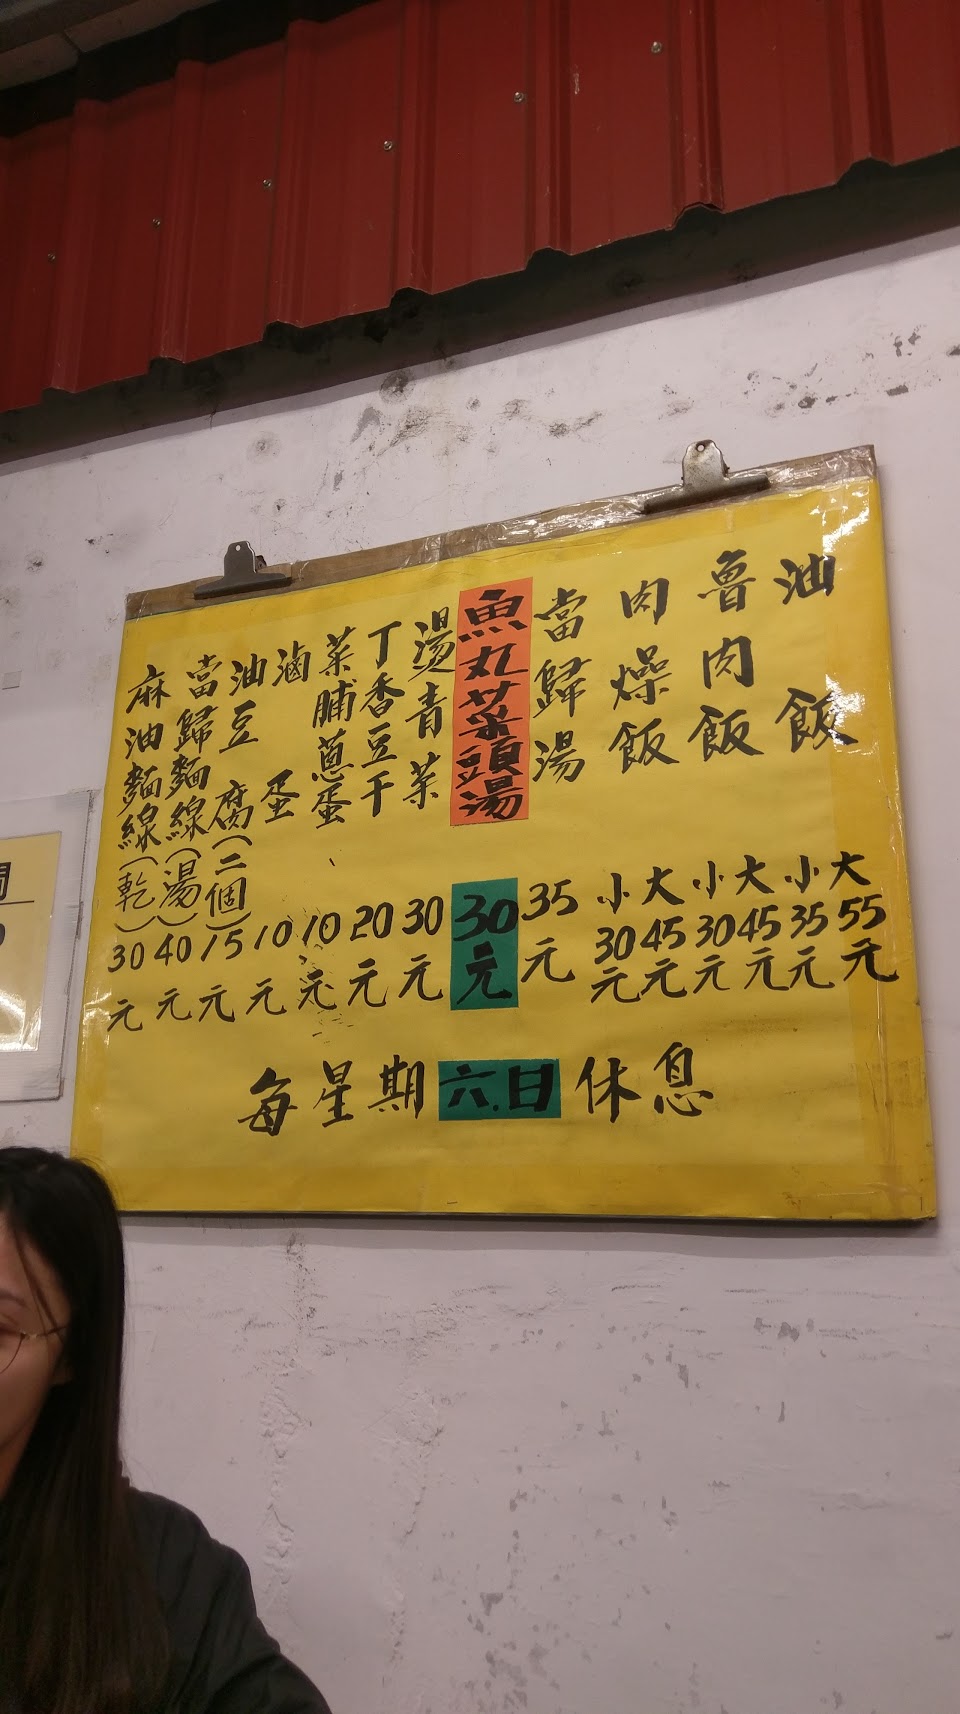 油飯 大55元 小35元
魯肉飯 大45元 小30元
肉燥飯 大45元 小30元
當歸湯 35元
魚丸菜頭湯 30元
湯青菜 30元
丁香豆干 20元
菜脯蔥蛋 10元
滷蛋 10元
油豆腐(二個) 15元
當歸麵線(湯) 40元
麻油麵線(乾) 30元
每星期六.日休息